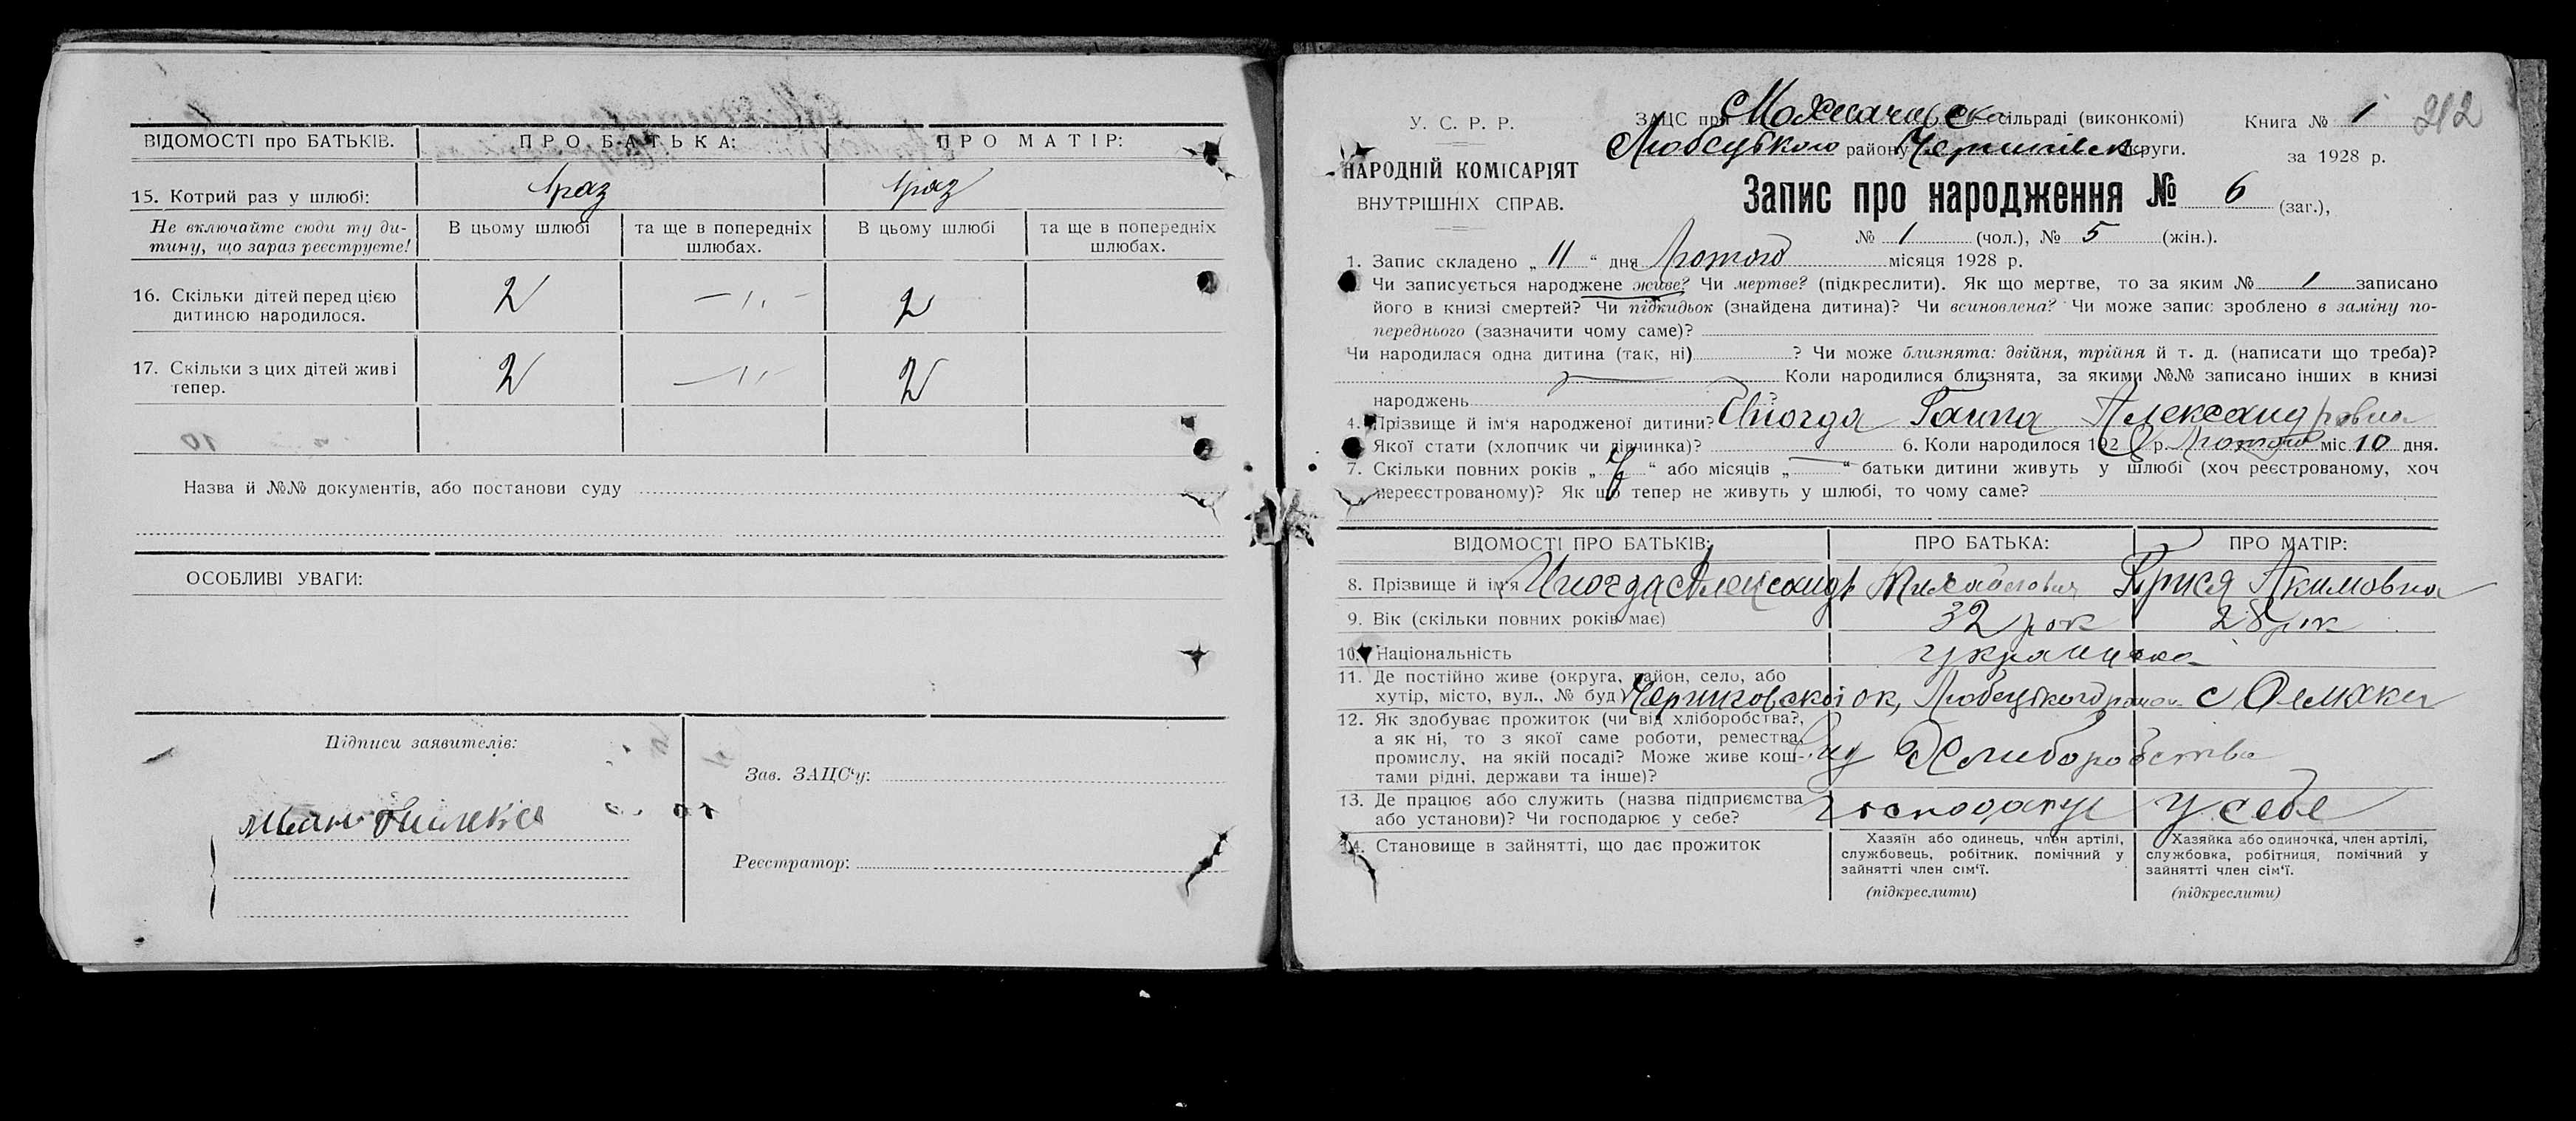 ВІДОМОСТІ про БАТЬКІВ. ПРО БАТЬКА: ПРО МАТІР:
15. Котрий раз у шлюбі: 1 раз 1 раз
Не включайте сюди ту ди-
тину, що зараз реєструєте!
В цьому шлюбі
та ще в попередніх
шлюбах.
В цьому шлюбі
та ще в попередніх
шлюбах.
16. Скільки дітей перед цією
дитиною народилося.
2 —〃— 2
17. Скільки з цих дітей живі
тепер.
2 —〃— 2
Назва й №№ документів, або постанови суду
ОСОБЛИВІ УВАГИ:
Підписи заявителів:
Зав. ЗАЦС'у:
Реєстратор:
212
У. С. Р. Р.
НАРОДНІЙ КОМІСАРІЯТ
ВНУТРІШНІХ СПРАВ.
ЗАЦС при сільраді (виконкомі)
Любецького району Чернигівск округи.
Книга № 1
за 1928 р.
Запис про народження № 6 (заг.),
№ 1 (чол.), № 5 (жін.).
1. Запис складено „11“ дня Лютого місяця 1928 р.
Чи записується народжене живе? Чи мертве? (підкреслити). Як що мертве, то за яким № 1 записано
його в книзі смертей? Чи підкидьок (знайдена дитина)? Чи всиновлена? Чи може запис зроблено в заміну по-
переднього (зазначити чому саме)?
Чи народилася одна дитина (так, ні) ? Чи може близнята: двійня, трійня й т. д. (написати що треба)?
Коли народилися близнята, за якими №№ записано інших в книзі
народжень ?
4. Прізвище й ім'я народженої дитини? Иногда Ганна Александровна
Якої стати (хлопчик чи дівчинка)? 6. Коли народилося 1928 р. Лютого міс 10 дня.
7. Скільки повних років „ “ або місяців „—“ батьки дитини живуть у шлюбі (хоч реєстрованому, хоч
нереєстрованому)? Як що тепер не живуть у шлюбі, то чому саме?
ВІДОМОСТІ ПРО БАТЬКІВ: ПРО БАТЬКА: ПРО МАТІР:
8. Прізвище й ім'я Иногда Александр Михайлович Прися Акимовна
9. Вік (скільки повних років має) 32 рок 28 рик
10. Національність украинска
11. Де постійно живе (округа, район, село, або
хутір, місто, вул., № буд) Черниговской ок, Любецького район с
12. Як здобуває прожиток (чи від хліборобства?,
а як ні, то з якої саме роботи, ремества,
промислу, на якій посаді? Може живе кош-
тами рідні, держави та інше)?
вид Хлиборобства
13. Де працює або служить (назва підприємства
або установи)? Чи господарює у себе?
господарує у себе
14. Становище в зайнятті, що дає прожиток
Хазяїн або одинець, член артілі,
службовець, робітник, помічний у
зайнятті член сім'ї.
(підкреслити)
Хазяйка або одиночка, член артілі,
службовка, робітниця, помічний у
зайнятті член сім'ї.
(підкреслити)